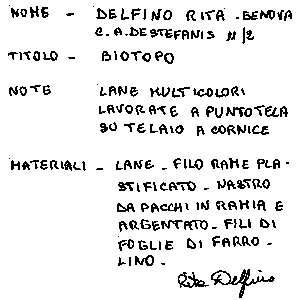 NOME - DELFINO RITA - GENOVA
C. A. DESTEFANIS 11/2
TITOLO - BIOTOPO
NOTE LANE MULTICOLORI
LAVORATE A PUNTOTELA
SU TELAIO A CORNICE
MATERIALI - LANE - FILO RAME PLA-
STIFICATO - NASTRO
DA PACCHI IN RAMIA E
ARGENTATO - FILI DI
FOGLIE DI FARRO -
LINO -
Rita Delfino